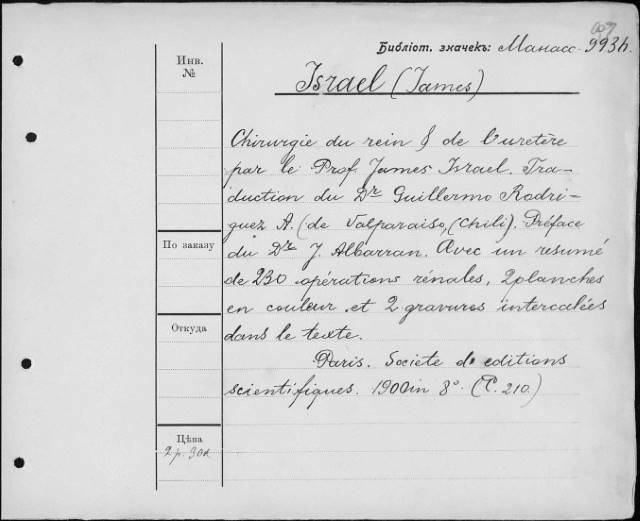 Библіот. значекъ: Манасс. 993h.
Инв.
№
Israel (James)
Chirurgie du rein & de l'uretère
par le Prof. James Israel. Tra-
duction du Dr Guillermo Rodri-
guez A. (de Valparaiso, (Chili). Préface
du Dr J. Albarran. Avec un resumé
de 230 opérations rénales, 2 planches
en couleur et 2 gravures intercalées
dans le texte.
Paris. Societe de editions
scientifiques. 1900 in 8°. (С. 210.)
По заказу
Откуда
Цѣна
2 р. 30 к